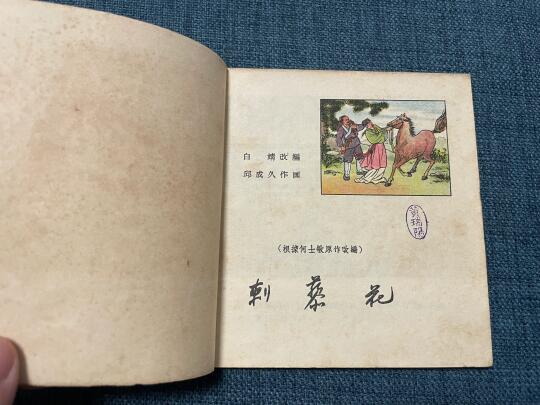 白 靖改編
邱成久作画
(根據何士敏原作改編)
刺藜花